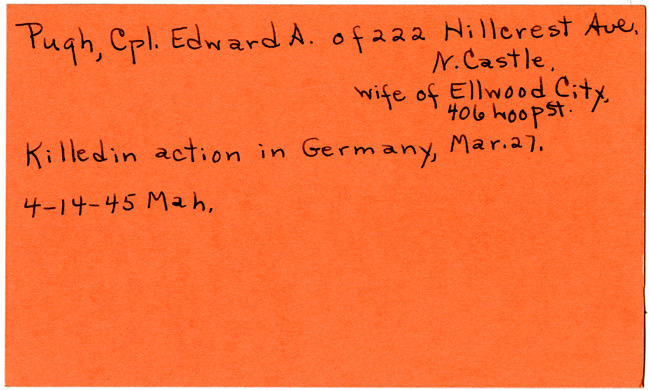 Pugh, Cpl. Edward A. of 222 Hillcrest Ave.
N. Castle.
wife of Ellwood City,
406 Loop St.
Killed in action in Germany, Mar. 27.
4-14-45 Mah.